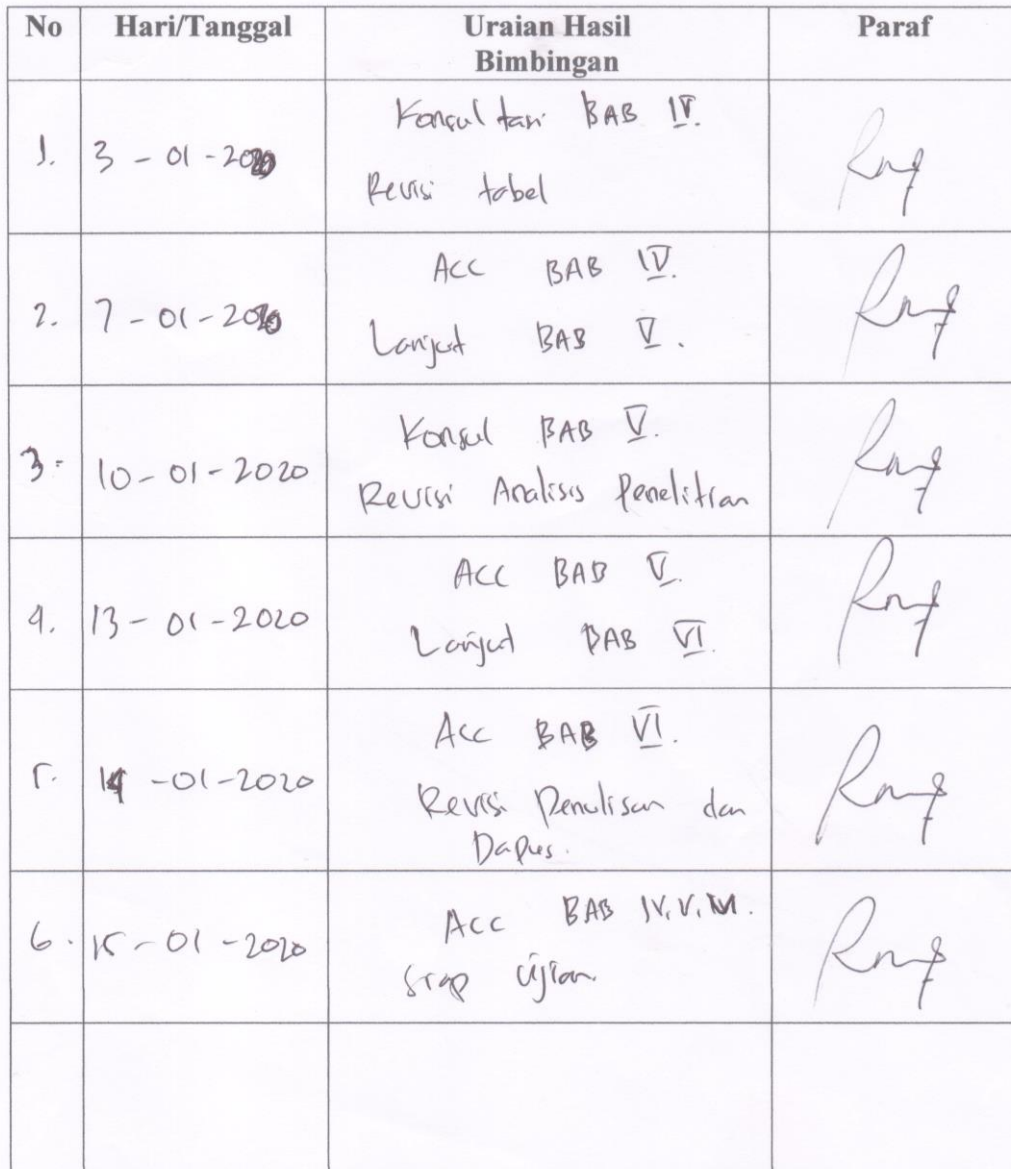 No Hari/Tanggal Uraian Hasil Bimbingan Paraf
1. 3 - 01 - 2020 Konsultasi BAB IV.
Revisi tabel
2. 7 - 01 - 2020 ACC BAB IV.
Lanjut BAB V.
3. 10 - 01 - 2020 Konsul BAB V.
Revisi Analisis Penelitian
4. 13 - 01 - 2020 ACC BAB V.
Lanjut BAB VI.
5. 14 - 01 - 2020 Acc BAB VI.
Revisi Penulisan dan
Dapus.
6. 15 - 01 - 2020 Acc BAB IV, V, VI.
Siap Ujian.